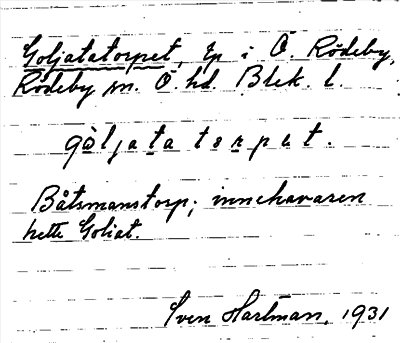 Goljatatorpet, tp i Ö. Rödeby,
Rödeby sn. Ö. hd. Blek. l.
gòljatatorpet.
Båtsmanstorp; innehavaren
hette Goliat.
Sven Hartman, 1931